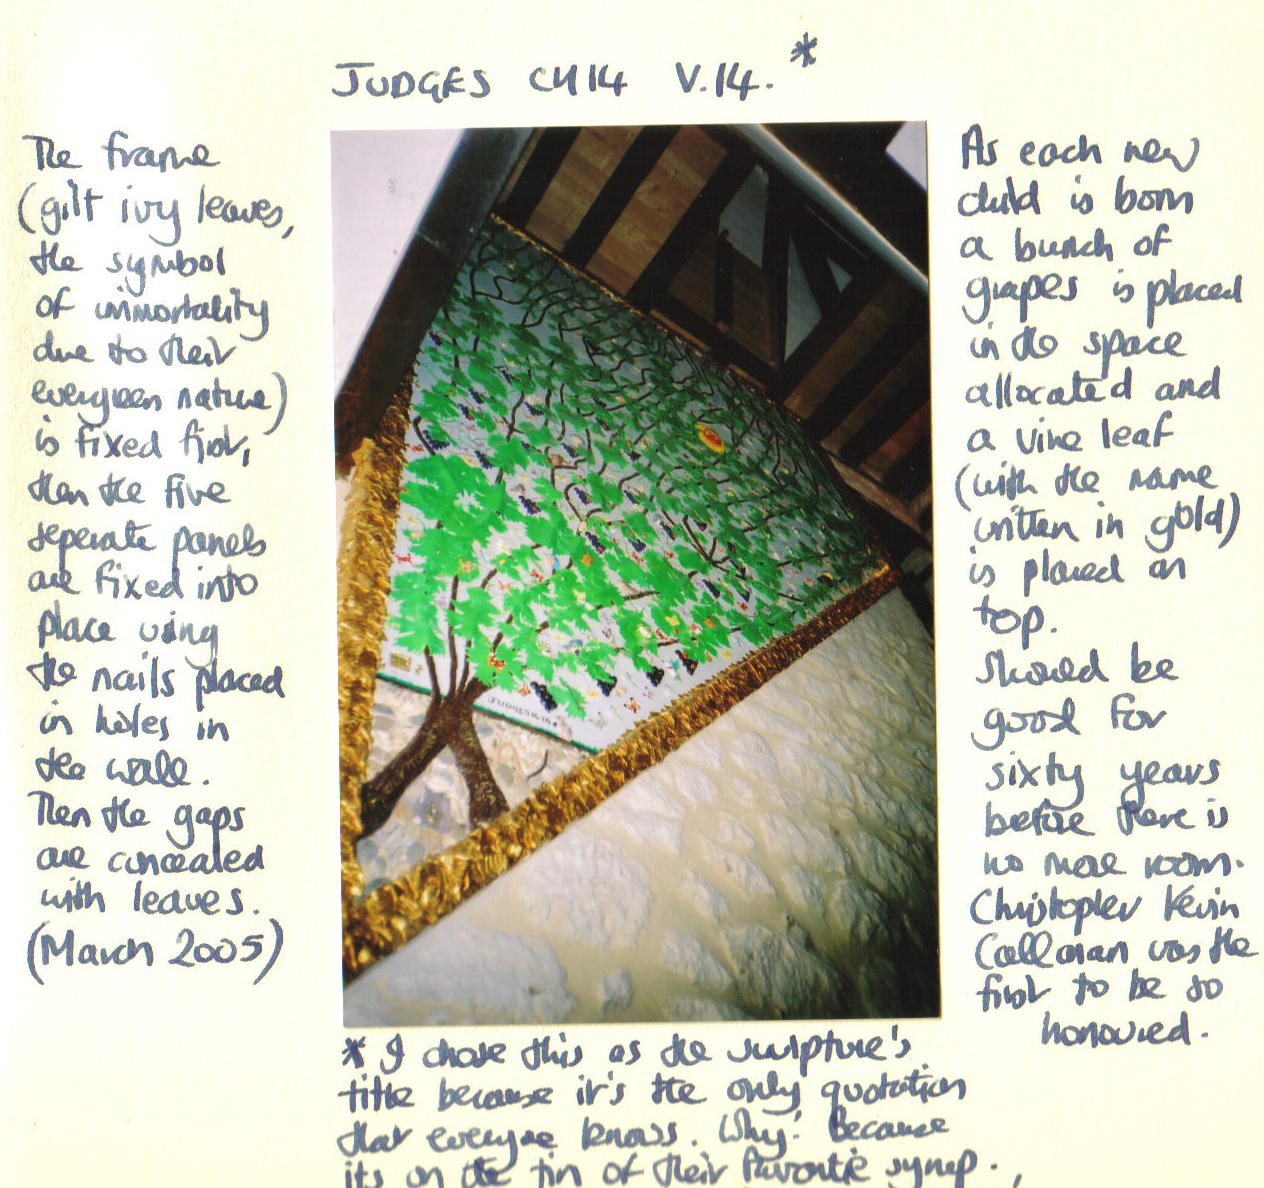 JUDGES CH14 V.14.*
The frame
(gilt ivy leaves,
the symbol
of immortality
due to their
evergreen nature)
is fixed first,
then the five
seperate panels
are fixed into
place using
the nails placed
in holes in
the wall.
Then the gaps
are concealed
with leaves.
(March 2005)
As each new
child is born
a bunch of
grapes is placed
in the space
allocated and
a vine leaf
(with the name
written in gold)
is placed on
top.
Should be
good for
sixty years
before there is
no more room.
Christopher Kevin
Callman was the
first to be so
honoured.
JUDGES 14:14
* I chose this as the sculpture's
title because it's the only quotation
that everyone knows. Why? Because
its on the tin of their favourite syrup.